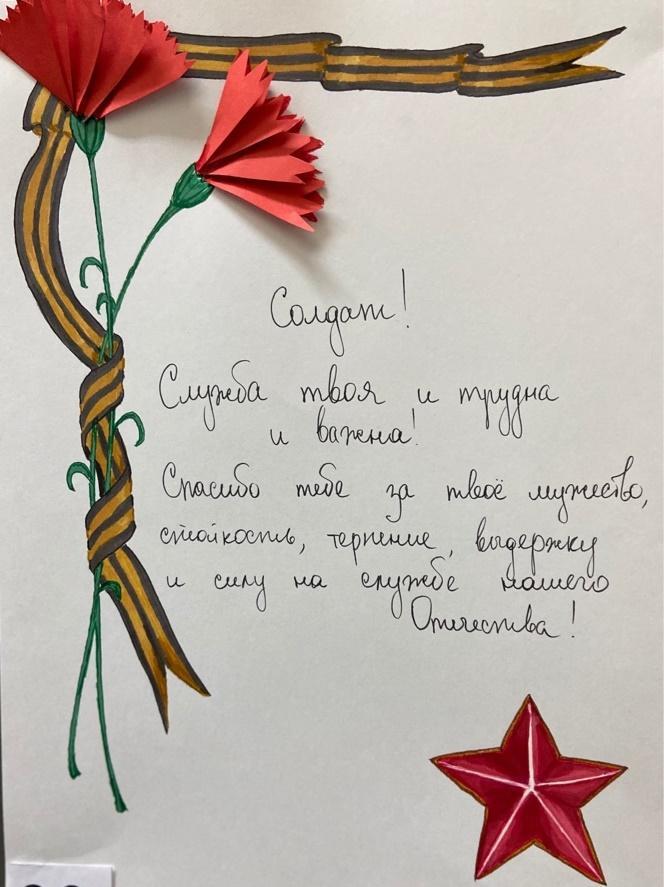 Солдат!
Служба твоя и трудна
и важна!
Спасибо тебе за твоё мужество,
стойкость, терпение, выдержку
и силу на службе нашего
Отечества!